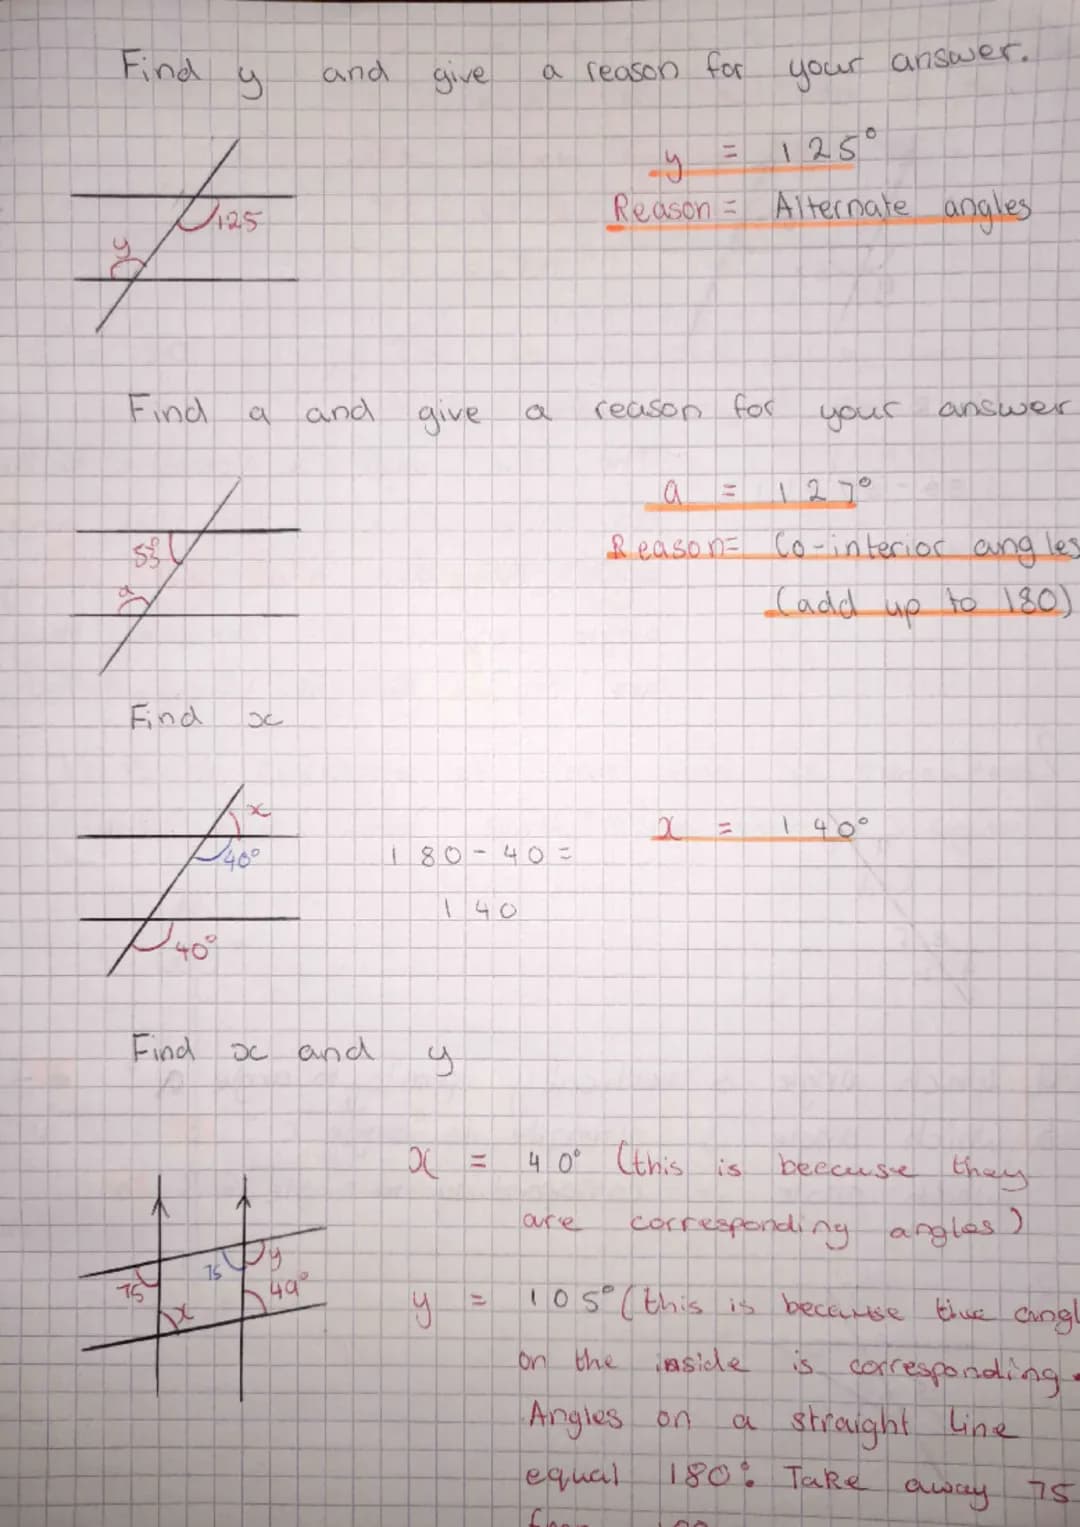 Find y and give a reason for your answer.
y = 125°
Reason = Alternate angles
125
y
Find a and give a reason for your answer
a = 127°
Reason= Co-interior angles
(add up to 180)
53°
a
Find x
x
40°
40°
180-40=
140
x = 140°
Find x and y
x = 40° (this is beccuse they
are corresponding angles)
y = 105° (this is because the angl
on the inside is corresponding.
Angles on a straight line
equal 180° Take away 75
75
75
y
49°
x